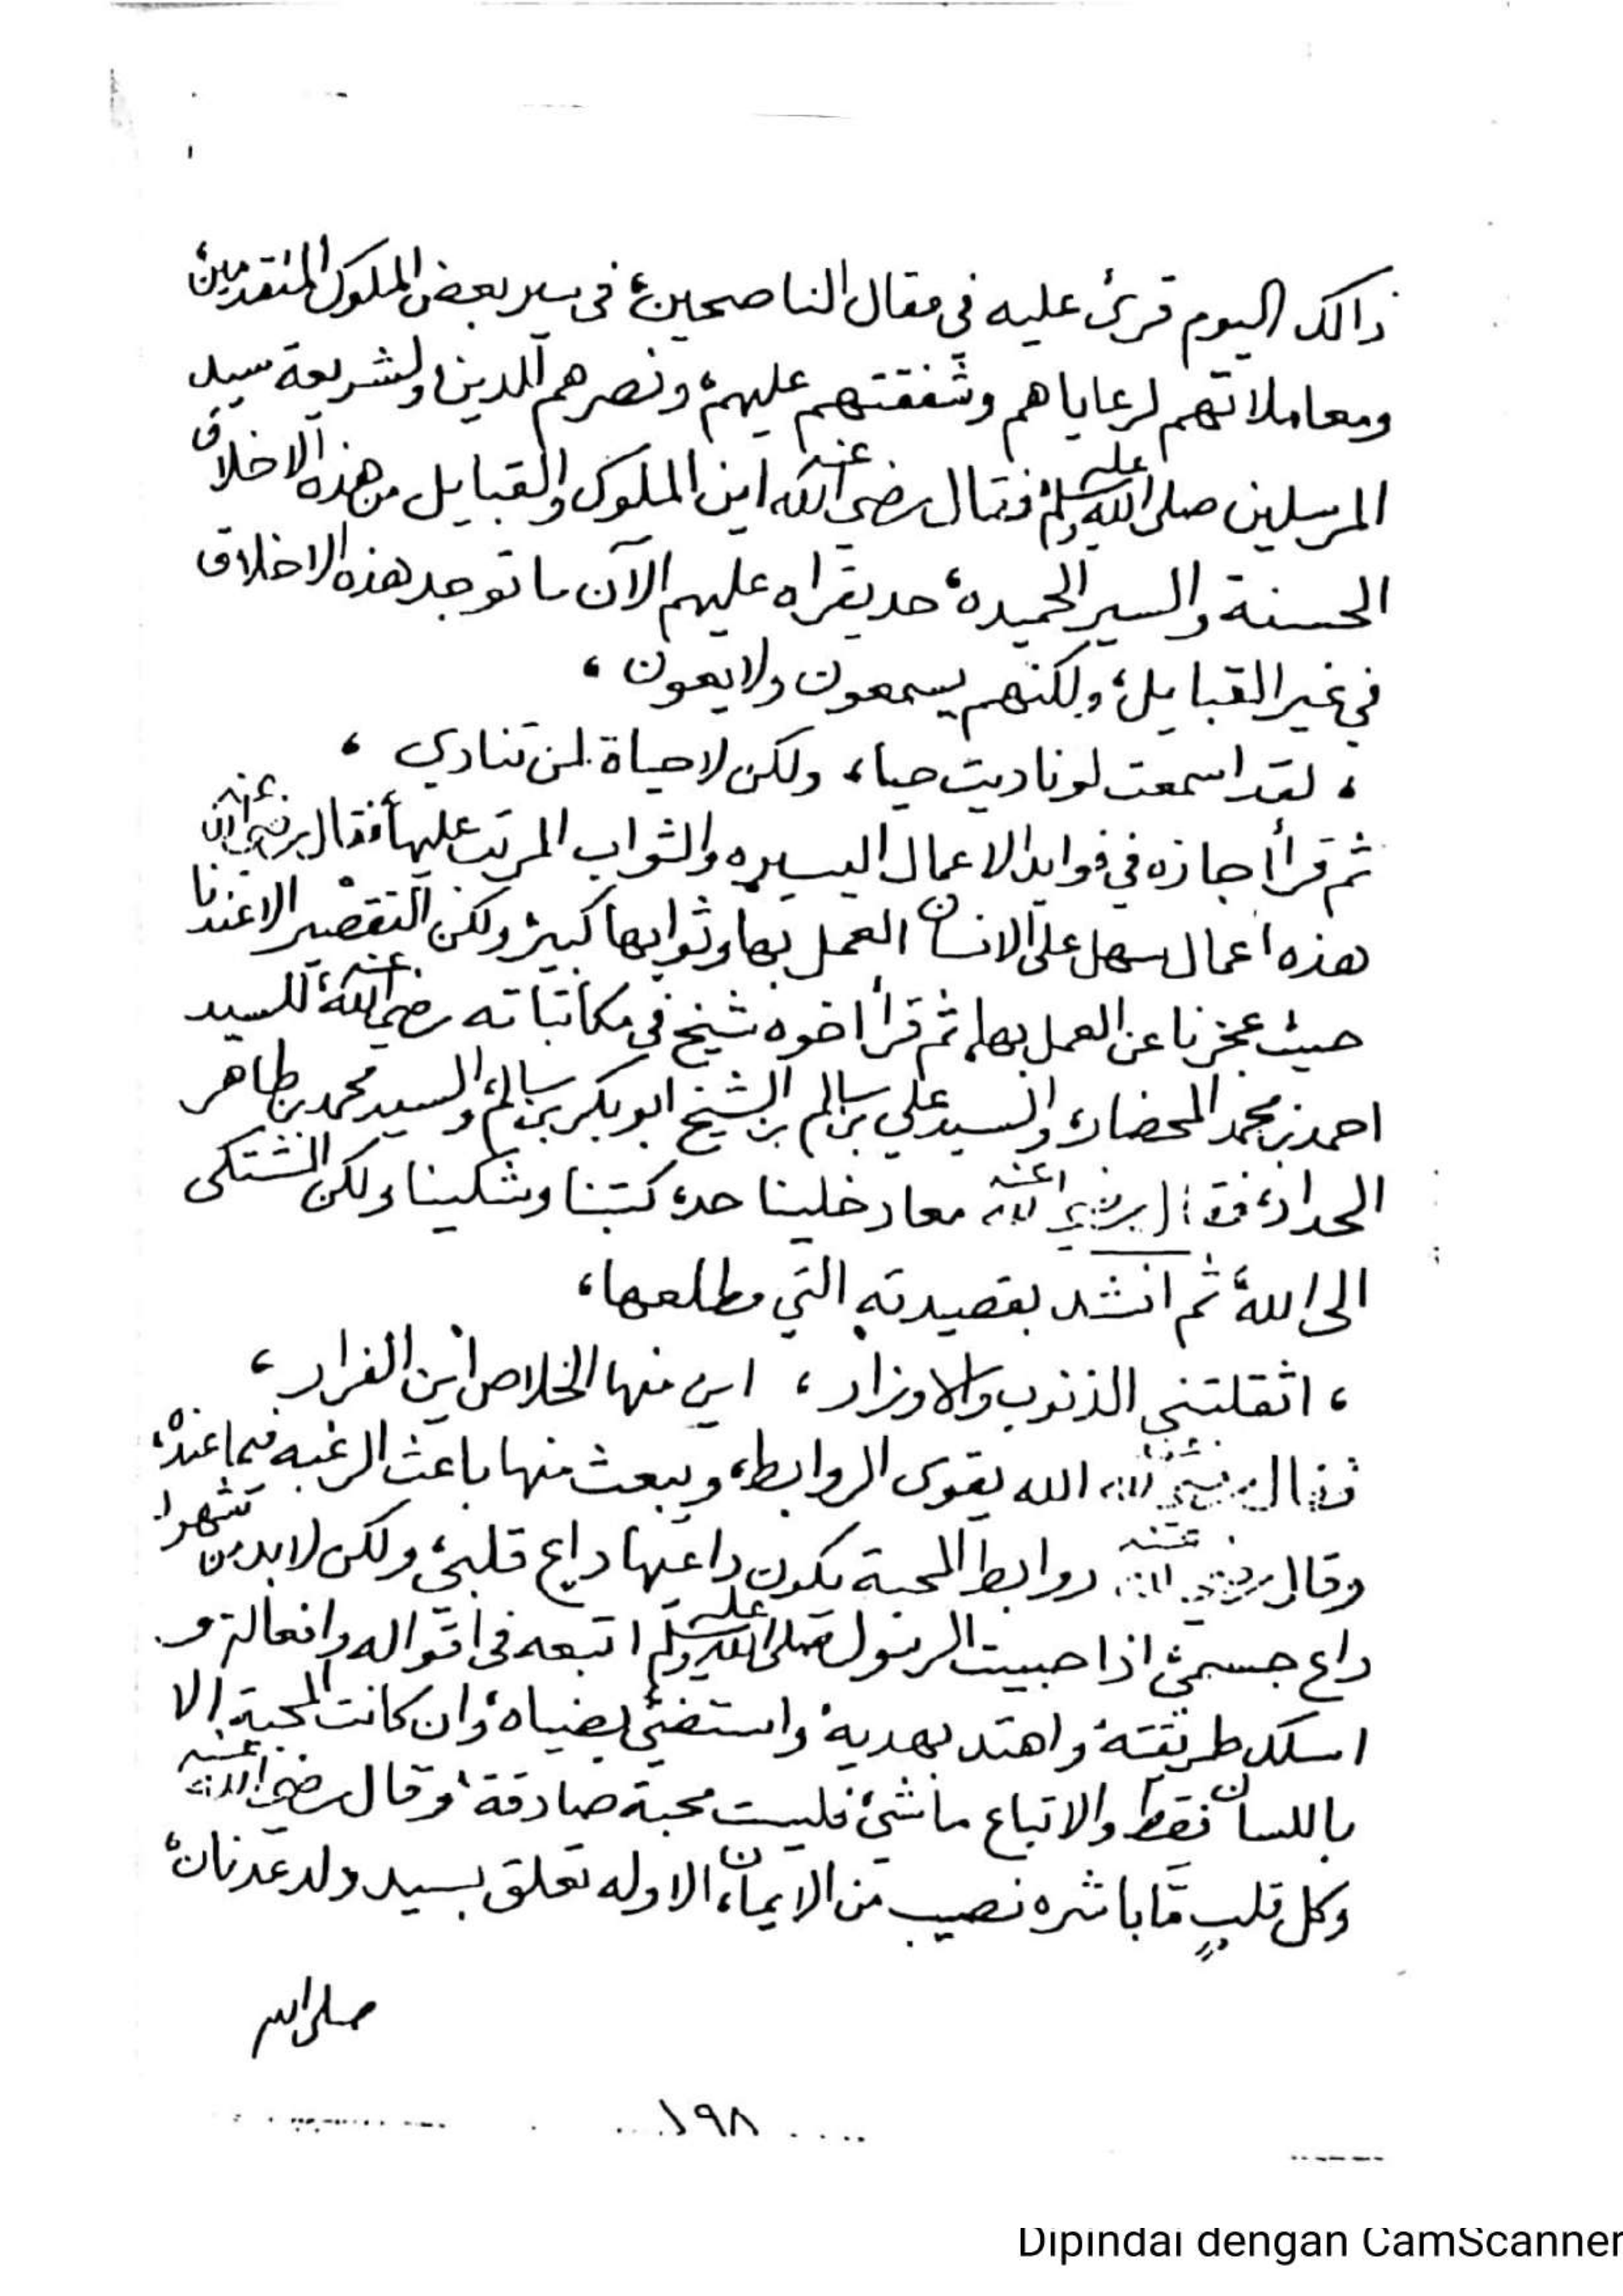 ذالك اليوم قرئ عليه في مقال الناصحين، في سير بعض الملوك المتقدمين،
ومعاملاتهم لرعاياهم وشفقتهم عليهم، ونصرهم للدين، ولشريعة سيد
المرسلين صلى الله عليه وسلم، فقال رضي الله عنه اين الملوك والقبايل من هذه الاخلاق
الحسنة والسير الحميده، حد يقراه عليهم الآن ما توجد هذه الاخلاق
في غير القبايل، ولكنهم يسمعون ولا يعون ،
، لقد اسمعت لو ناديت حيا، ولكن لا حياة لمن تنادي ،
ثم قرأ اجازه في فوايد الاعمال اليسيره والثواب المرتب عليها فقال رضي الله عنه
هذه اعمال سهل على الانسان العمل بها وثوابها كبير، ولكن التقصير الا عندنا
حيث عجزنا عن العمل بها، ثم قرأ اخوه شيخ في مكاتباته رضي الله عنه للسيد
احمد بن محمد المحضار، والسيد علي بن سالم بن الشيخ ابو بكر بن سالم، والسيد محمد بن طاهر
الحداد، فقال رضي الله عنه معاد خلينا حد، كتبنا وشكينا ولكن المشتكى
الى الله، ثم انشد بقصيدته التي مطلعها،
، اثقلتني الذنوب والاوزار ، اين منها الخلاص اين الفرار ،
فقال رضي الله عنه الله يقوى الروابط، ويبعث منها باعث الرغبه فيما عنده،
وقال رضي الله عنه روابط المحبة يكون داعيها داع قلبي، ولكن لا بد من شهوا
داع جسمي، اذا حبيت الرسول صلى الله عليه وسلم اتبعه في اقواله وافعاله، و
اسلك طريقته، واهتد بهديه، واستضئ بضياه، وان كانت المحبة الا
باللسان فقط والاتباع ما شئ فليست محبة صادقة، وقال رضي الله عنه
وكل قلبٍ ما باشره نصيب من الايمان، الا وله تعلق بسيد ولد عدنان،
صلى الله
١٩٨
Dipindai dengan CamScanner